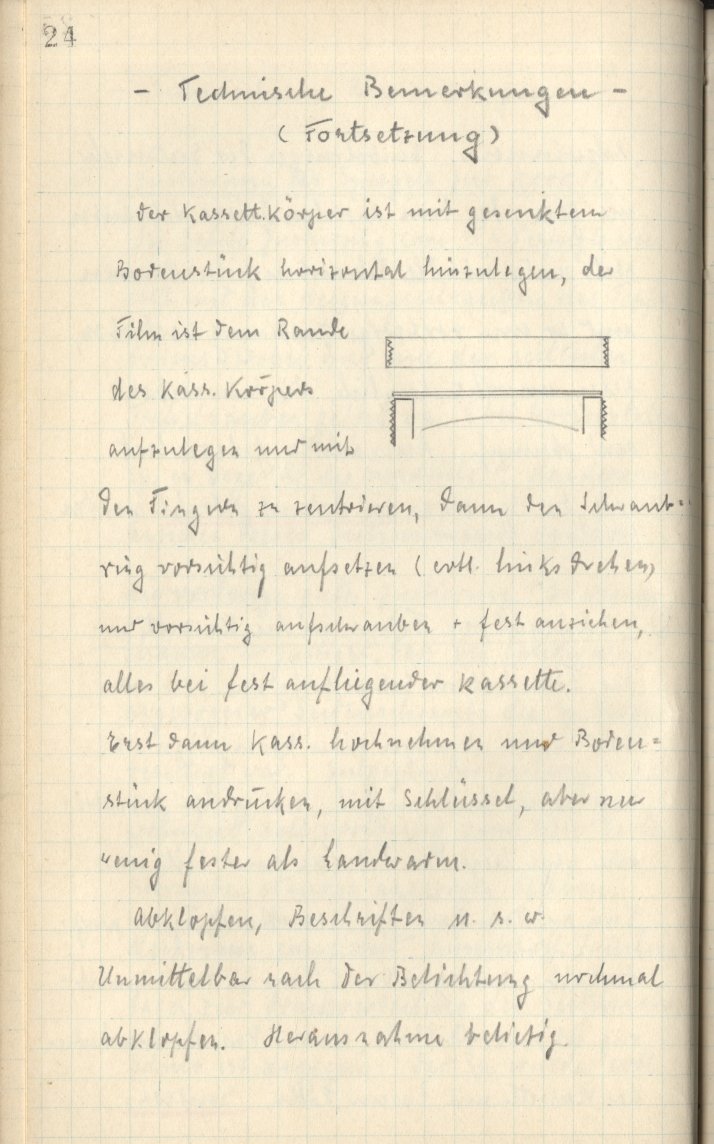 24
- Technische Bemerkungen -
(Fortsetzung)
Der Kassett.Körper ist mit gesenktem
Bodenstück horizontal hinzulegen, der
Film ist dem Rande
des Kass. Körpers
aufzulegen und mit
den Fingern zu zentrieren, dann den Schraub=
ring vorsichtig aufsetzen (evtl. links drehen)
und vorsichtig aufschrauben + fest anziehen,
alles bei fest aufliegender Kassette.
Erst dann Kass. hochnehmen und Boden=
stück andrücken, mit Schlüssel, aber nur
wenig fester als handwarm.
Abklopfen, Beschriften u. s. w.
Unmittelbar nach der Belichtung nochmal
abklopfen. Herausnahme beliebig.